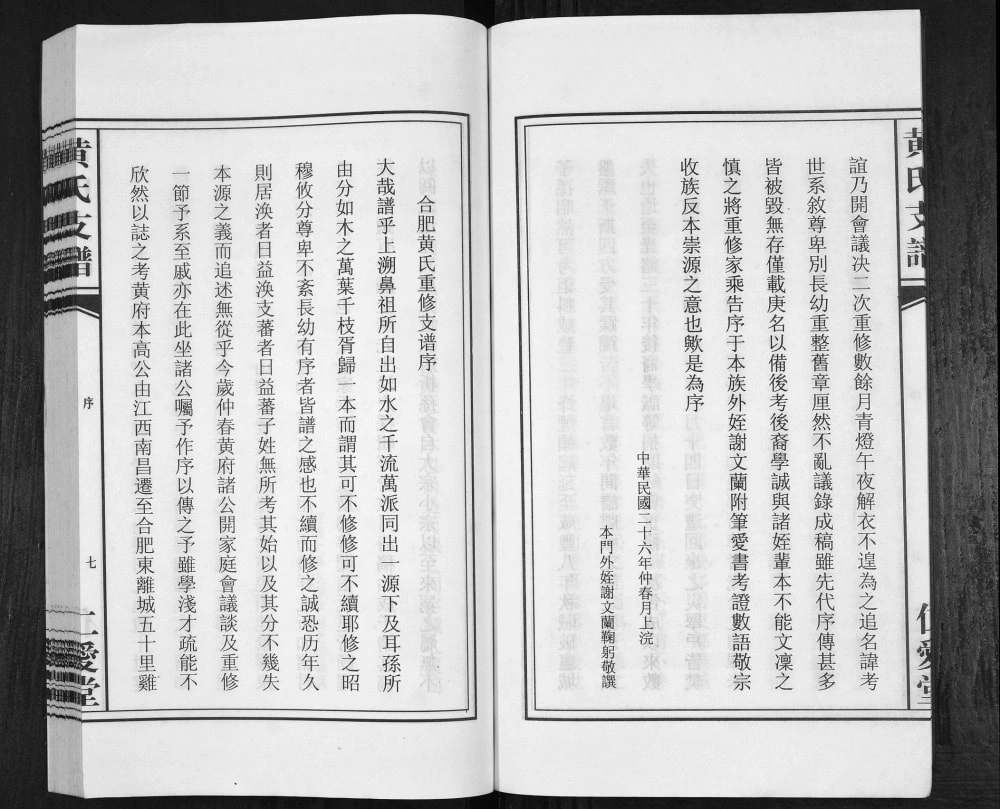 黄氏支譜
誼乃開會議决二次重修數餘月青燈午夜解衣不遑為之追名諱考
世系敘尊卑別長幼重整舊章厘然不亂議錄成稿雖先代序傳甚多
皆被毀無存僅載庚名以備後考後裔學誠與諸姪輩本不能文凜之
慎之將重修家乘告序于本族外姪謝文蘭附筆愛書考證數語敬宗
收族反本崇源之意也歟是為序
中華民國二十六年仲春月上浣
本門外姪謝文蘭鞠躬敬撰
仁愛堂
合肥黄氏重修支谱序
大哉譜乎上溯鼻祖所自出如水之千流萬派同出一源下及耳孫所
由分如木之萬葉千枝胥歸一本而謂其可不修修可不續耶修之昭
穆攸分尊卑不紊長幼有序者皆譜之感也不續而修之誠恐历年久
則居涣者日益涣支蕃者日益蕃子姓無所考其始以及其分不幾失
本源之義而追述無從乎今歲仲春黄府諸公開家庭會議談及重修
一節予系至戚亦在此坐諸公囑予作序以傳之予雖學淺才疏能不
欣然以誌之考黄府本高公由江西南昌遷至合肥東離城五十里雞
黄氏支譜
序
七
仁愛堂